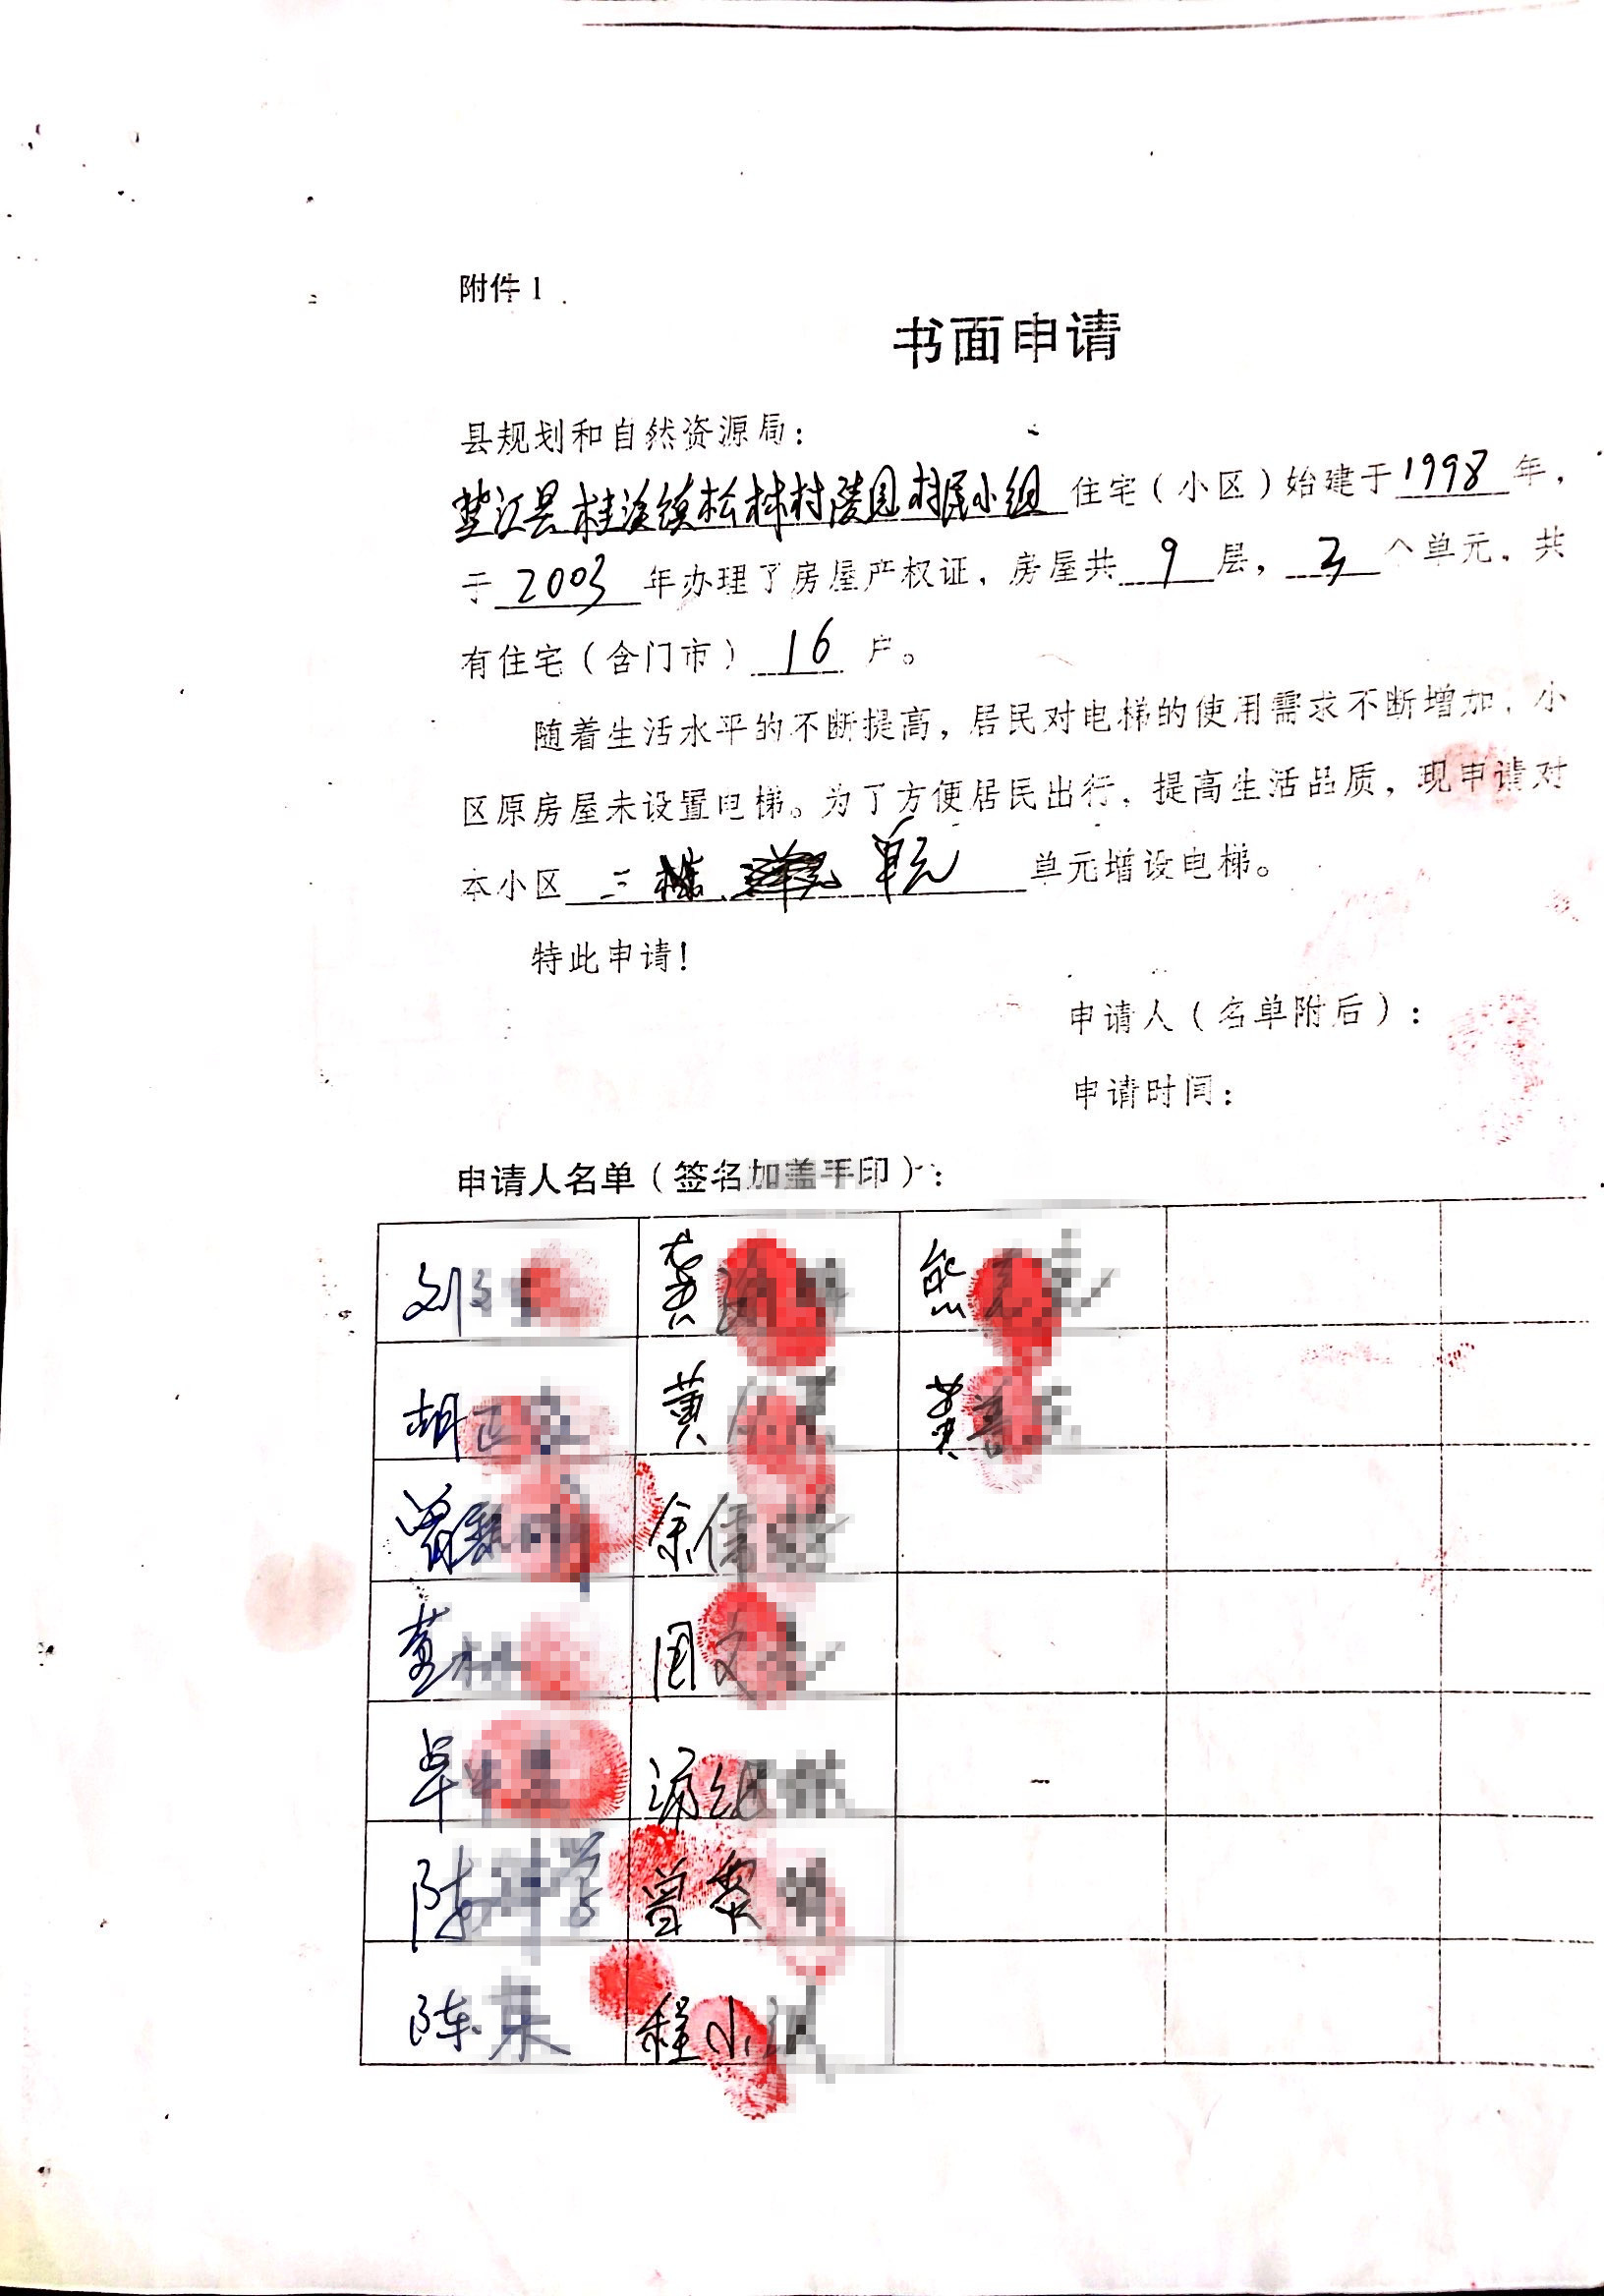 附件1
书面申请
县规划和自然资源局：
垫江县桂溪镇松林村陵园村民小组住宅（小区）始建于1998年，
于2003年办理了房屋产权证，房屋共9层，3个单元，共
有住宅（含门市）16户。
随着生活水平的不断提高，居民对电梯的使用需求不断增加，小
区原房屋未设置电梯。为了方便居民出行，提高生活品质，现申请对
本小区三单元单元增设电梯。
特此申请！
申请人（名单附后）：
申请时间：
申请人名单（签名加盖手印）：
刘 龚 熊
胡 黄 黄
曾 余
董 周
卓
陈 曾黎
陈 程小